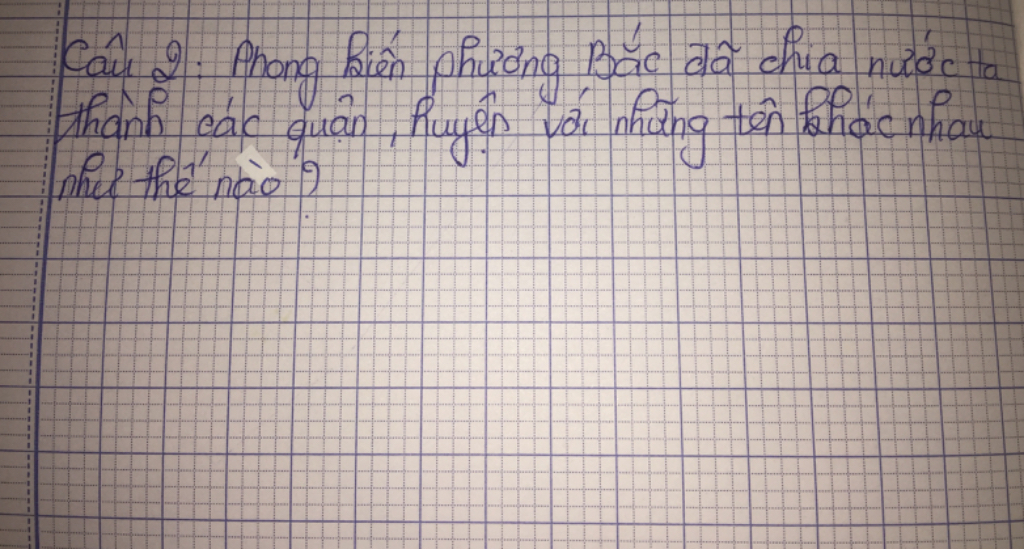 Câu 2: Phong kiến phương Bắc đã chia nước ta
thành các quận, huyện với những tên khác nhau
như thế nào?